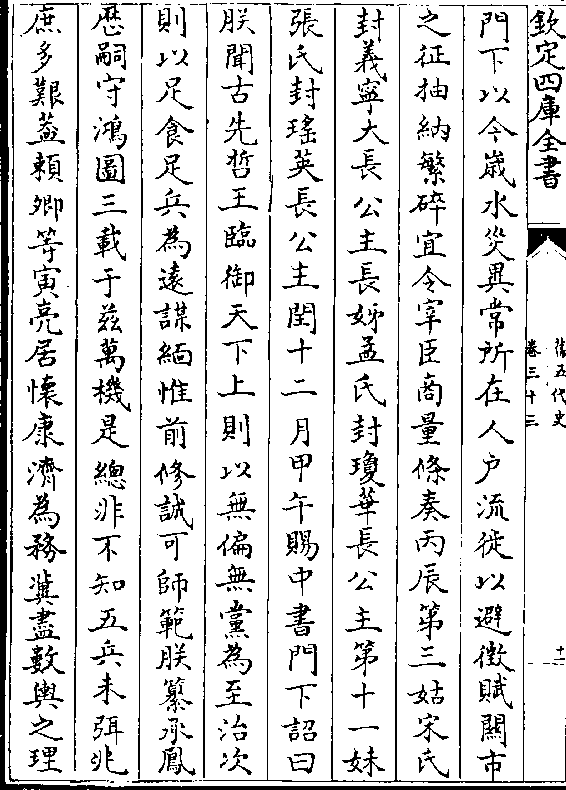 欽定四庫全書
舊五代史
卷三十三
十一
門下以今歲水災異常所在人户流徙以避徵賦關市
之征抽納繁碎宜令宰臣商量條奏丙辰第三姑宋氏
封義寧大長公主長姊孟氏封瓊華長公主第十一妹
張氏封瑤英長公主閏十二月甲午賜中書門下詔曰
朕聞古先哲王臨御天下上則以無偏無黨為至治次
則以足食足兵為遠謀緬惟前修誠可師範朕纂承鳳
歴嗣守鴻圖三載于兹萬機是總非不知五兵未弭兆
庶多艱葢賴卿等寅亮居懷康濟為務冀盡數輿之理